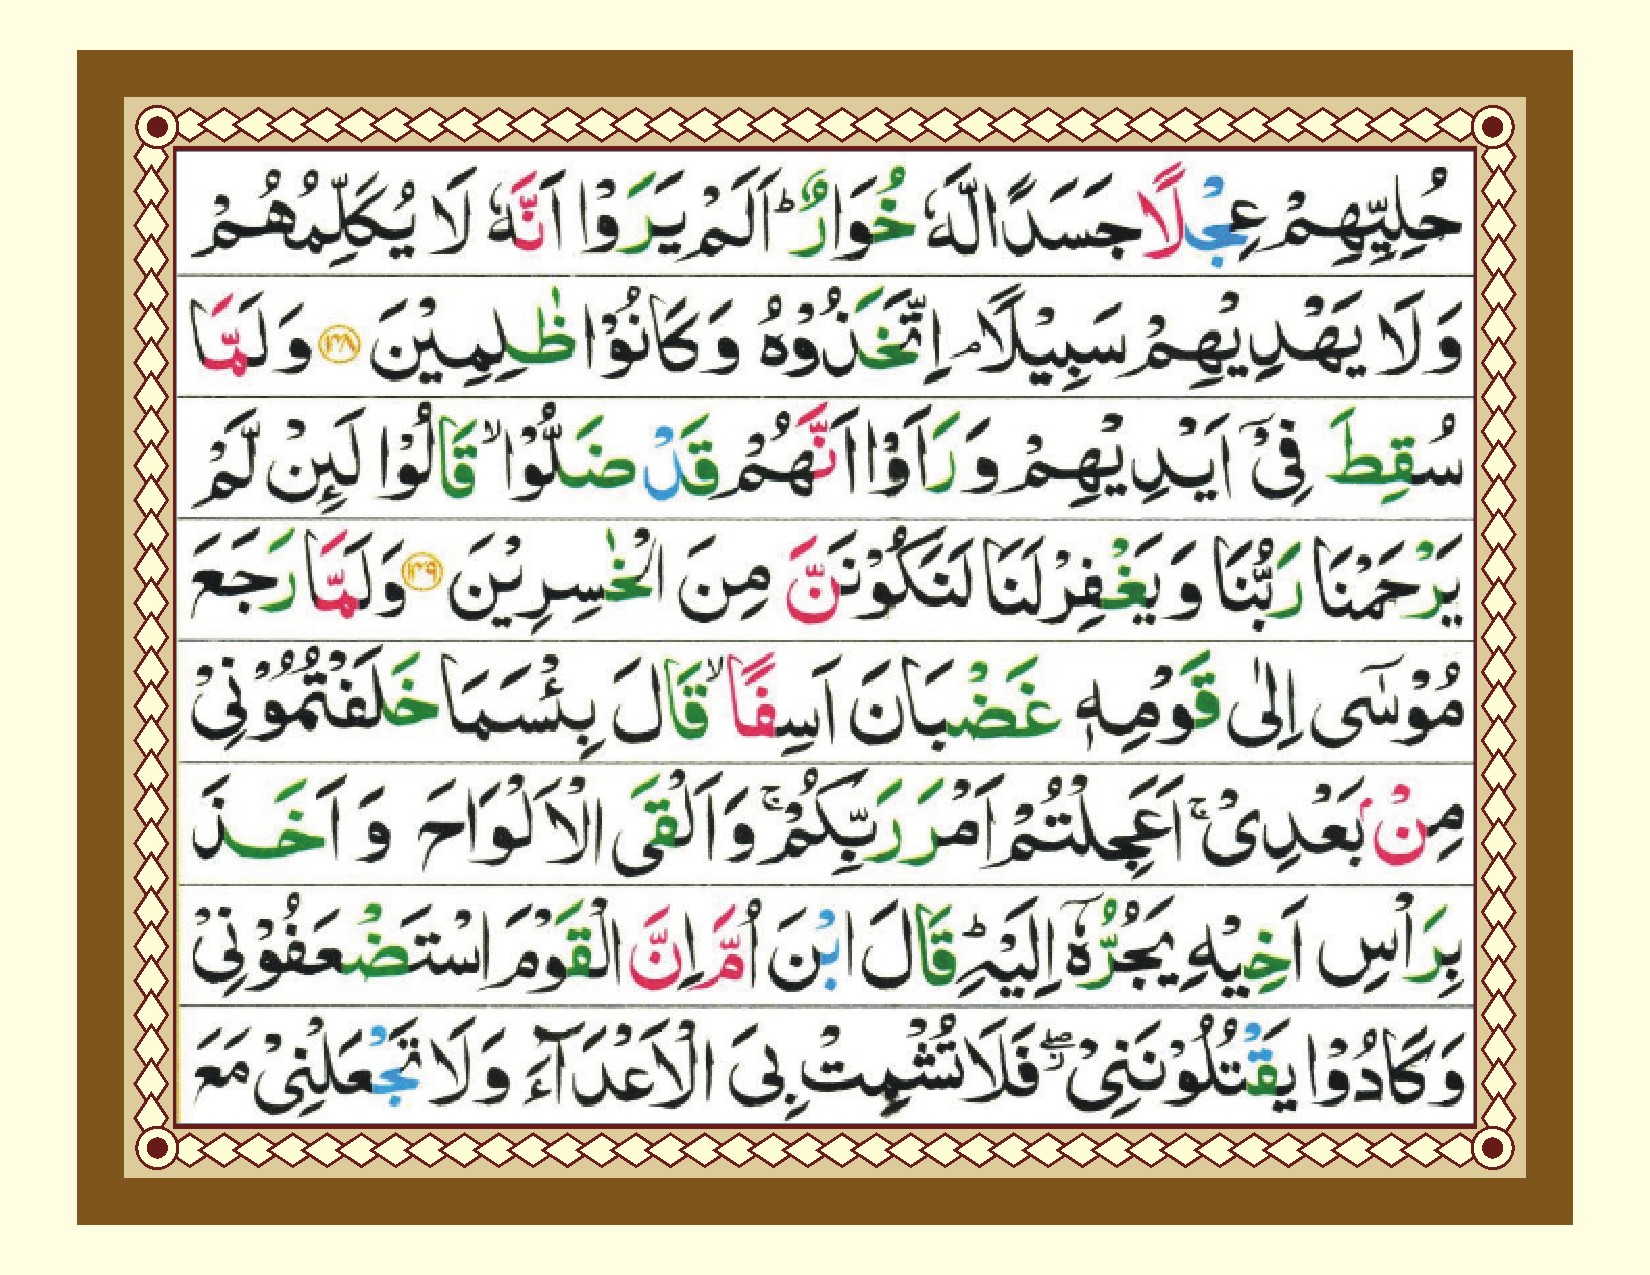 حُلِيِّهِمْ عِجْلًا جَسَدًا لَّهٗ خُوَارٌ ؕ اَلَمْ يَرَوْا اَنَّهٗ لَا يُكَلِّمُهُمْ
وَلَا يَهْدِيْهِمْ سَبِيْلًا ۘ اِتَّخَذُوْهُ وَكَانُوْا ظٰلِمِيْنَ ﴿۱۴۸﴾ وَلَمَّا
سُقِطَ فِىْۤ اَيْدِيْهِمْ وَرَاَوْا اَنَّهُمْ قَدْ ضَلُّوْا ۙ قَالُوْا لَىِٕنْ لَّمْ
يَرْحَمْنَا رَبُّنَا وَيَغْفِرْ لَنَا لَنَكُوْنَنَّ مِنَ الْخٰسِرِيْنَ ﴿۱۴۹﴾ وَلَمَّا رَجَعَ
مُوْسٰۤى اِلٰى قَوْمِهٖ غَضْبَانَ اَسِفًا ۙ قَالَ بِئْسَمَا خَلَفْتُمُوْنِىْ
مِنْۢ بَعْدِىْ ۚ اَعَجِلْتُمْ اَمْرَ رَبِّكُمْ ۚ وَاَلْقَى الْاَلْوَاحَ وَ اَخَذَ
بِرَاْسِ اَخِيْهِ يَجُرُّهٗۤ اِلَيْهِ ؕ قَالَ ابْنَ اُمَّ اِنَّ الْقَوْمَ اسْتَضْعَفُوْنِىْ
وَكَادُوْا يَقْتُلُوْنَنِىْ ۖؗ فَلَا تُشْمِتْ بِىَ الْاَعْدَآءَ وَلَا تَجْعَلْنِىْ مَعَ